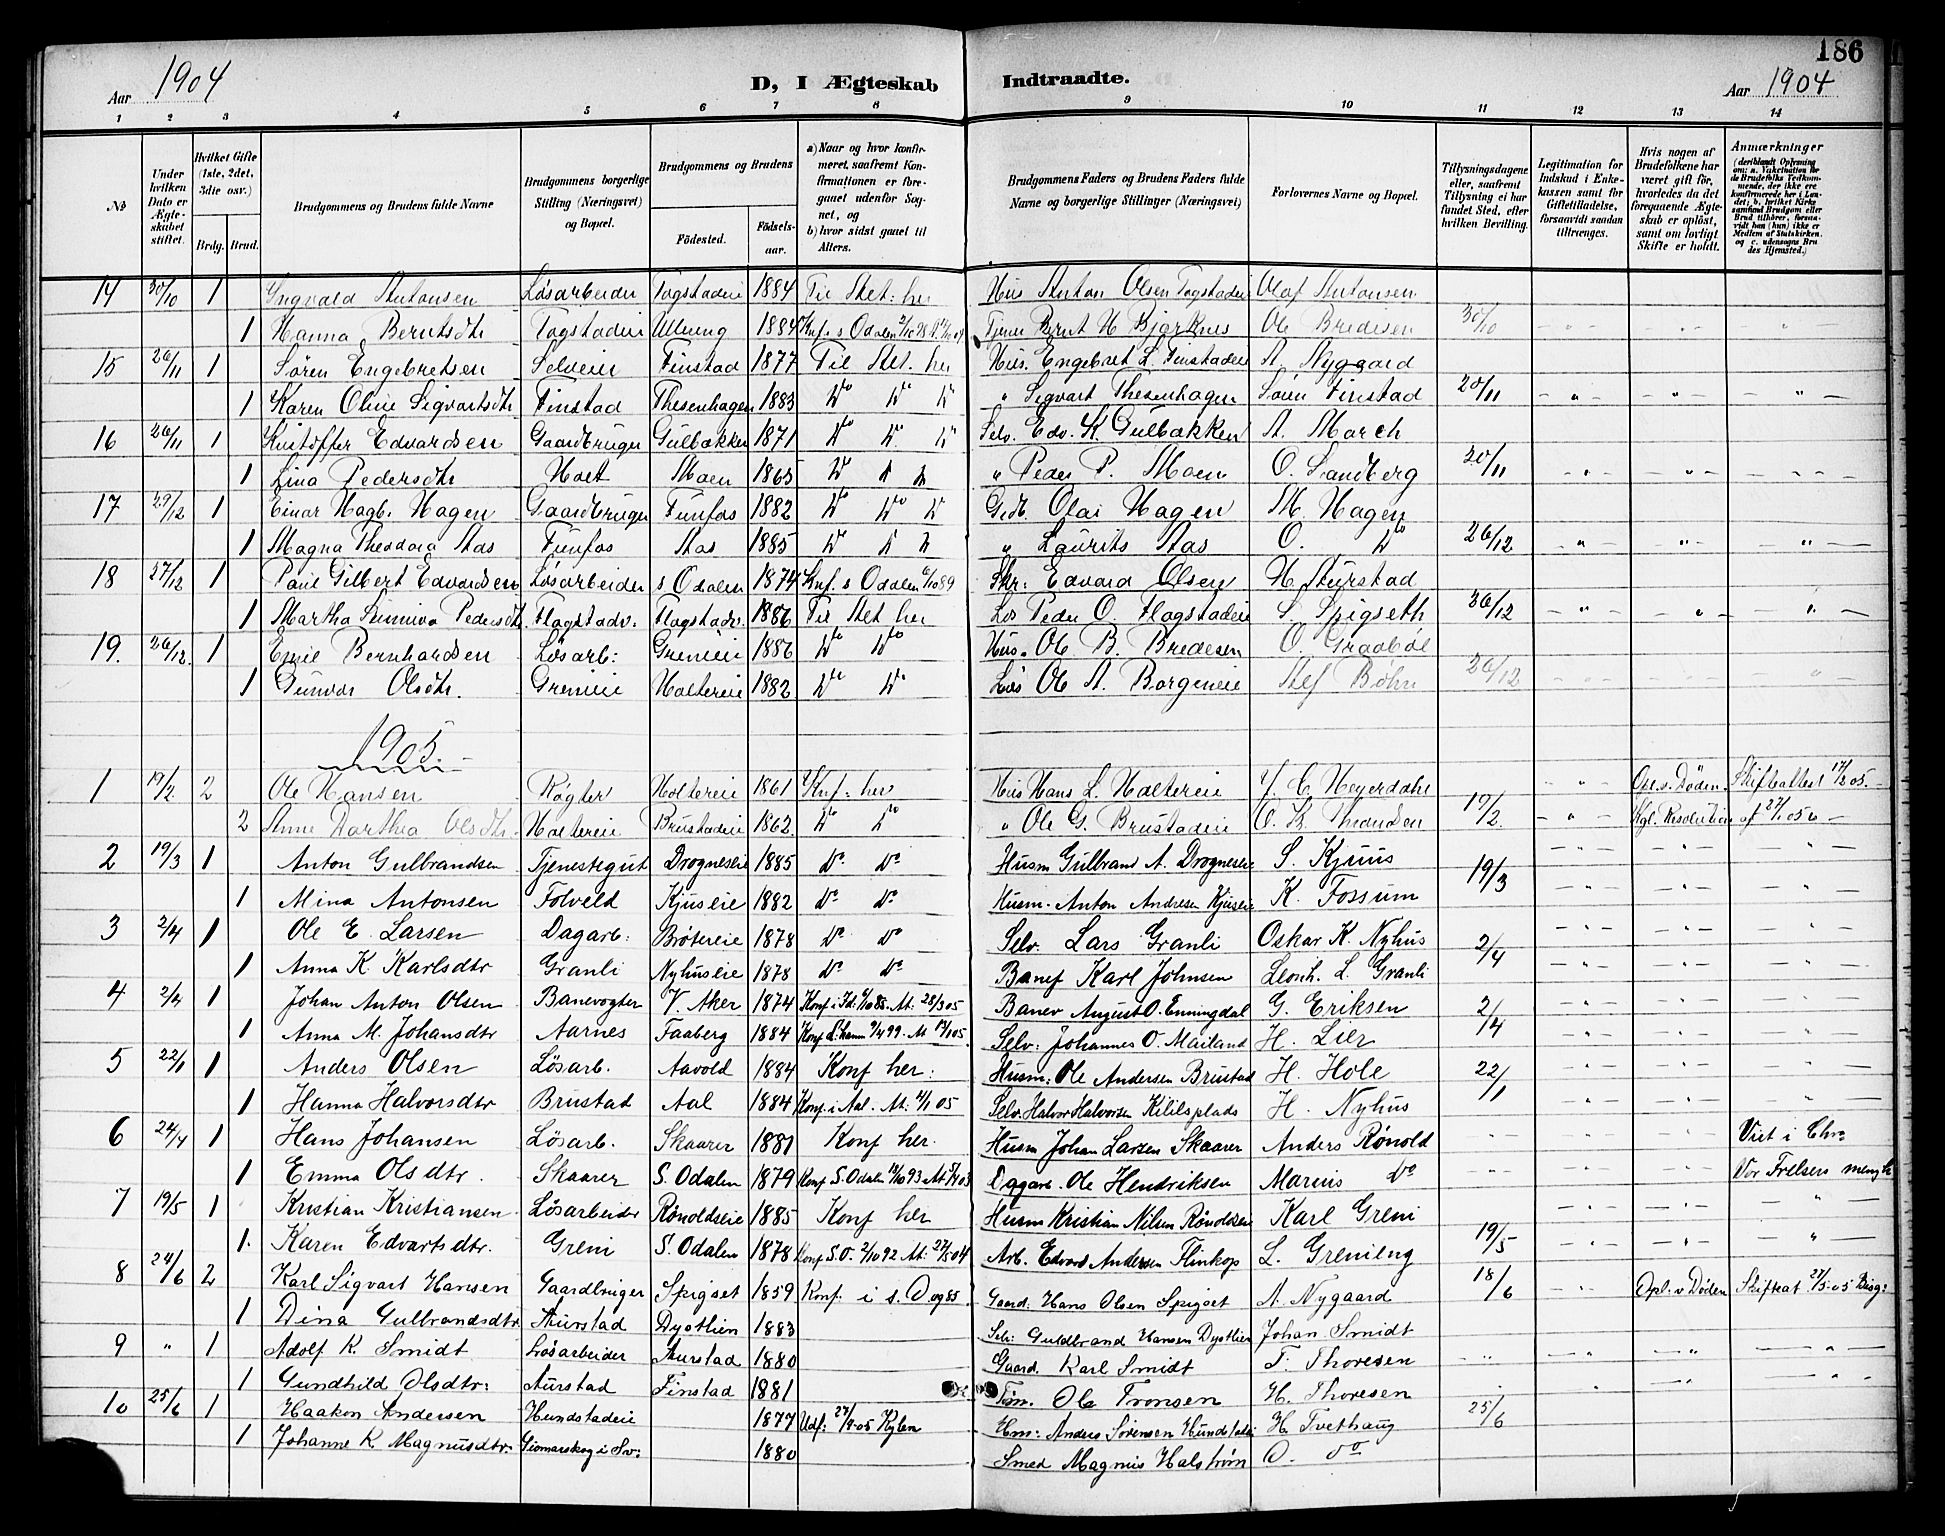 186
Aar 1904 D, I Ægteskab Indtraadte. Aar 1904
1 2 3 4 5 6 7 8 9 10 11 12 13 14
№ | Under hvilken Dato er Ægteskabet stiftet. | Hvilket Gifte (1ste, 2det, 3die osv.) Brdg. Brud. | Brudgommens og Brudens fulde Navne | Brudgommens borgerlige Stilling (Næringsvei) og Bopæl. | Brudgommens og Brudens Födested. Födsels-aar. | a) Naar og hvor konfirmeret, saafremt Konfirmationen er foregaaet udenfor Sognet, og b) hvor sidst gaaet til Alters. | Brudgommens Faders og Brudens Faders fulde Navne og borgerlige Stillinger (Næringsvei) | Forlovernes Navne og Bopæl. | Tillysningsdagene eller, saafremt Tillysning ei har fundet Sted, efter hvilken Bevilling. | Legitimation for Indskud i Enkekassen samt for Giftetilladelse, forsaavidt saadan tiltrænges. | Hvis nogen af Brudefolkene har været gift för, hvorledes da det foregaaende Ægteskab er oplöst, samt om lovligt Skifte er holdt. | Anmærkninger (deriblandt Oplysning om: a. Vakcination for de Brudefolks Vedkommende, der ikke ere konfirmerede her i Landet; b. hvilket Kirkesamfund Brudgom eller Brud tilhörer, forsaavidt han (hun) ikke er Medlem af Statskirken. og c. udensogns Brudes Hjemsted.)
14 30/10 1 Ingvald Antonsen Løsarbeider Tagstadeie 1884 Til Alt: her Hus Anton Olsen Tagstadeie Olaf Antonsen
1 Hanna Berntsdtr Tagstadeie Ullning 1884 Knf. s Odalen Tjener Bernt H Bjørknes Ole Bredesen 30/10
15 26/11 1 Søren Engebretsen Selveier Finstad 1877 Til Alt. her Hus. Engebret L. Finstadeie A. Nygaard
1 Karen Oline Sigvartsdtr Finstad Thesenhagen 1883 Do Do Do " Sigvart Thesenhagen Søren Finstad 20/11
16 26/11 1 Kristoffer Edvardsen Gaardbruger Gulbakken 1871 Do Do Do Selv. Edv. K. Gulbakken A. March
1 Lina Pedersdtr Holt Moen 1865 Do " Peder P. Moen O. Sandberg 20/11
17 29/12 1 Einar Hagb. Hagen Gaardbruger Funfos 1882 Do Do Do Gdb. Olai Hagen M. Hagen
1 Magna Theodora Aas Funfos Aas 1885 Do " Laurits Aas O. Do 26/12
18 27/12 1 Paul Gilbert Edvardsen Løsarbeider s Odalen 1874 Knf. s Odalen 6/10 89 Skr: Edvard Olsen H Aurstad
1 Martha Sunniva Pedersdtr. Flagstadv. Flagstadv. 1886 Til Alt her Løs Peder O. Flagstadeie S. Spigseth 26/12
19. 26/12. 1 Emil Bernhardsen Løsarb: Grenieie 1886 Do Do Hus. Ole B. Bredesen O. Graabøl
1 Gunvor Olsdtr. Grenieie Holtereie 1882 Do Do Løs Ole A. Borgeneie Alf Bøhn 26/12
1905
1 19/2. 2 Ole Hansen Røgter Holtereie 1861 Knf: her Hus Hans L. Holtereie J. C. Heyerdahl Opl. v. Døden. Skifteattest 17/2 05.
2 Anne Dorthea Olsdtr. Holtereie Brustadeie 1862 Do Do " Ole G. Brustadeie O. K. Knudsen 19/2. Kgl. Resolution af 27/1 05
2 19/3 1 Anton Gulbrandsen Tjenestegut Drogneseie 1885 Do Do Husm Gulbrand A. Drogneseie S. Kjuus
1 Mina Antonsen Folveld Kjuseie 1882 Do Do Husm. Anton Andresen Kjuseie K. Fossum 19/3
3 2/4 1 Ole E. Larsen Dagarb: Brøtereie 1878 Do Do Selv. Lars Granli Oskar K. Nyhus
1 Anna K. Karlsdtr Granli Nyhuseie 1878 Do Do Banef Karl Johnsen Leonh. L. Granli 2/4
4 2/4 1 Johan Anton Olsen Banevogter V. Aker 1874 Konf. i Id: 6/10 88. Alt: 28/3 05 Banev August O. Enningdal G. Eriksen
1 Anna M. Johansdtr Aarnes Faaberg 1884 Konf L. hamm 9/4 99. Selv: Johannes O. Mailand H. Lier 2/4
5 22/1 1 Anders Olsen Løsarb. Aavold 1884 Konf her: Husm: Ole Andersen Brustad H. Hole
1 Hanna Halvorsdtr Brustad Aal 1884 Konf. i Aal. At: 4/1 05 Selv. Halvor Halvorsen Kililsplads H. Nyhus 22/1
6 24/4 1 Hans Johansen Løsarb. Skaarer 1881 Konf her. Husm Johan Larsen Skaarer Anders Rønold Viet i Chra
1 Emma Olsdtr. Skaarer S. Odalen 1879 Konf S. Odalen 19/10 93 Ole Hendriksen Marius Do Vor Frelsers mengh
7 19/5 1 Kristian Kristiansen Løsarbeider Rønoldseie 1885 Konf her Husm Kristian Nilsen Rønoldseie Karl Greni
1. Karen Edvartsdtr. Greni S. Odalen 1878 Konf S.O. 2/10 92 At: 27/5 04 Arb. Edvard Andersen Flinkop L. Grenieng 19/5
8 24/6 2 Karl Sigvart Hansen Gaardbruger Spigset 1859 Konf. i s. O og 85. Gaard. Hans Olsen Spigset A. Nygaard 18/6 Opl. v Døden Skifteat 27/5-05
1 Dina Gulbrandsdtr Aurstad Dystlien 1883 Selv: Guldbrand Hansen Dystlien Johan Smidt
9 " 1 Adolf K. Smidt Løsarbeider Aurstad 1880 Gaard. Karl Smidt T. Thoresen
1 Gundhild Olsdtr: Aurstad Finstad 1881 Tøm. Ole Tronsen H. Thoresen
10 25/6 1 Haakon Andersen Hundstadeie 1877 Udf: 27/4-05 Hm: Anders Sørensen Hundstadeie H. Tvethaug 25/6
1 Johanne K. Magnusdtr. 1880 Smed Magnus Halstrøm O. do